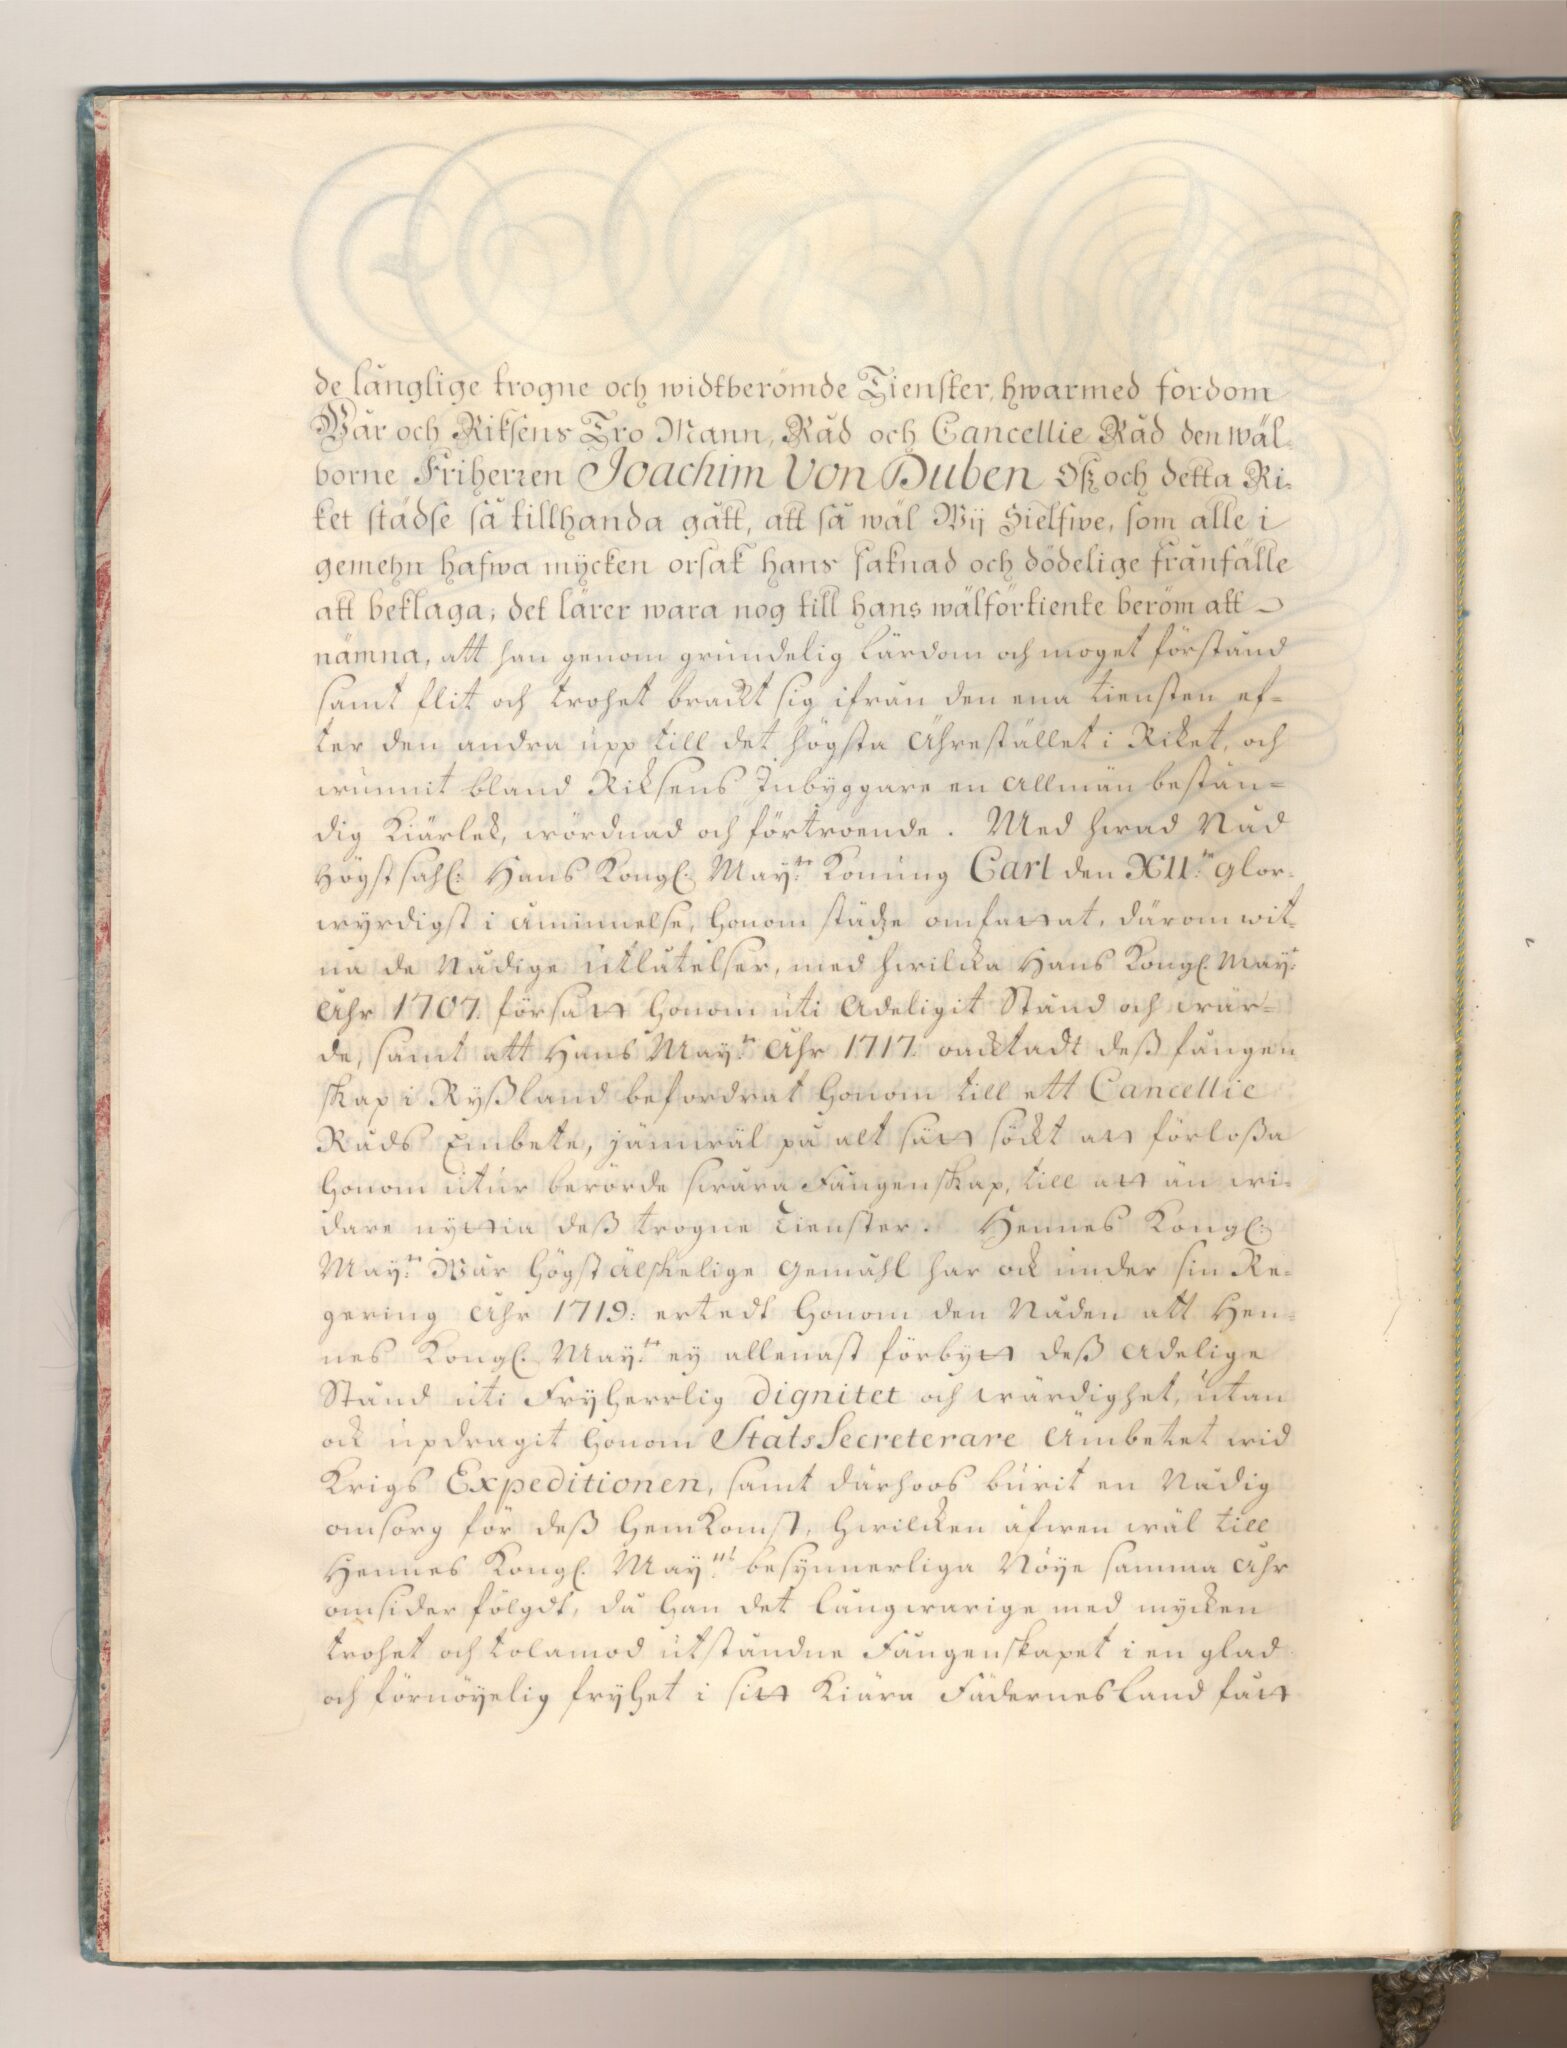 de långlige trogne och widtberömde Tienster, hwarmed fordom
Wår och Riksens Tro Mann, Råd och Cancellie Råd den wäl-
borne Friherren Joachim Von Duben Oß och detta Ri-
ket städse så tillhanda gått, att så wäl Wij Sielfwe, som alle i
gemehn hafwa mycken orsak hans saknad och dödelige frånfälle
att beklaga; det lärer wara nog till hans wälförtiente beröm att
nämna, att han genom grundelig lärdom och moget förstånd
samt flit och trohet brackt sig ifrån den ena tiensten ef-
ter den andra upp till det högsta Ährestället i Riket, och
wunnit bland Riksens Inbyggare en Allmän bestän-
dig Kiärlek, wördnad och förtroende. Med hwad Nåd
Högstsahl: Hans Kongl: Maytt: Konung Carl den XII:te glor-
wyrdigst i åminnelse, honom städze omfattat, därom wit-
na de Nådige utlåtelser, med hwilcka Hans Kongl: Mayt:
Åhr 1707 försatt honom uti Adeligit Stånd och wär-
de, samt att Hans Maytt: Åhr 1717. oacktadt deß fången
skap i Ryßland befordrat honom till ett Cancellie
Råds Embete, jämwäl på alt sätt söckt att förloßa
honom utur berörde swåra Fångenskap, till att än wi-
dare nyttia deß trogne tienster. Hennes Kongl:
Maytt: Wår högstälskelige Gemåhl har ock under sin Re-
gering Åhr 1719: ertedt honom den Nåden att Hen-
nes Kongl: Maytt: ey allenast förbytt deß Adelige
Stånd uti Fryherrlig dignitet och wärdighet, utan
ock updragit honom StatsSecreterare Ämbetet wid
Krigs Expeditionen, samt därhoos burit en Nådig
omsorg för deß hemkomst, hwilcken äfwen wäl till
Hennes Kongl: Maytts besynnerliga Nöye samma Åhr
omsider fölgdt, då han det långwarige med mycken
trohet och tolamod utståndne Fångenskapet i en glad
och förnöyelig fryhet i sitt Kiära Fäderneslandfått